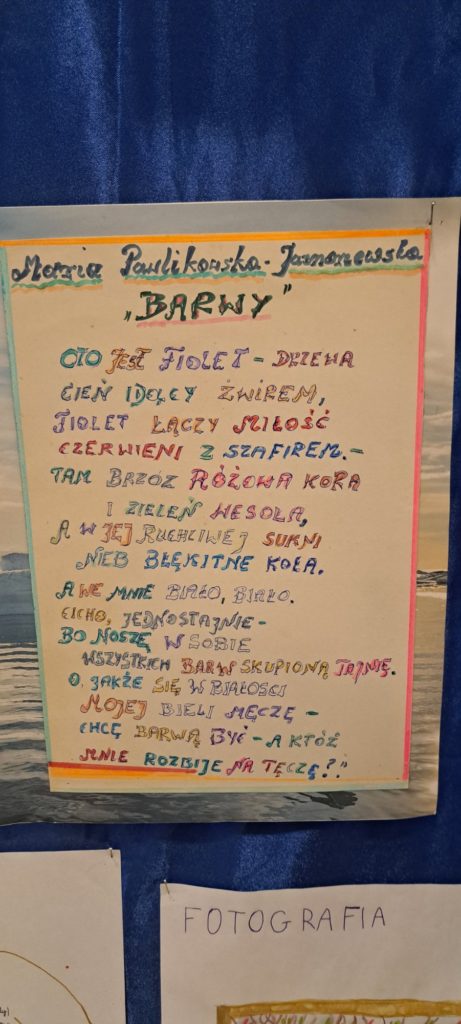 Maria Pawlikowska-Jasnorzewska
„BARWY"
OTO JEST FIOLET - DRZEWA
CIEŃ IDĄCY ŻWIREM,
FIOLET ŁĄCZY MIŁOŚĆ
CZERWIENI Z SZAFIREM. -
TAM BRZÓZ RÓŻOWA KORA
I ZIELEŃ WESOŁA,
A W JEJ RUCHLIWEJ SUKNI
NIEB BŁĘKITNE KOŁA.
A WE MNIE BIAŁO, BIAŁO.
CICHO, JEDNOSTAJNIE -
BO NOSZĘ W SOBIE
WSZYSTKICH BARW SKUPIONĄ TAJNIĘ.
O, JAKŻE SIĘ W BIAŁOŚCI
MOJEJ BIELI MĘCZĘ -
CHCĘ BARWĄ BYĆ - A KTÓŻ
MNIE ROZBIJE NA TĘCZĘ?"
FOTOGRAFIA